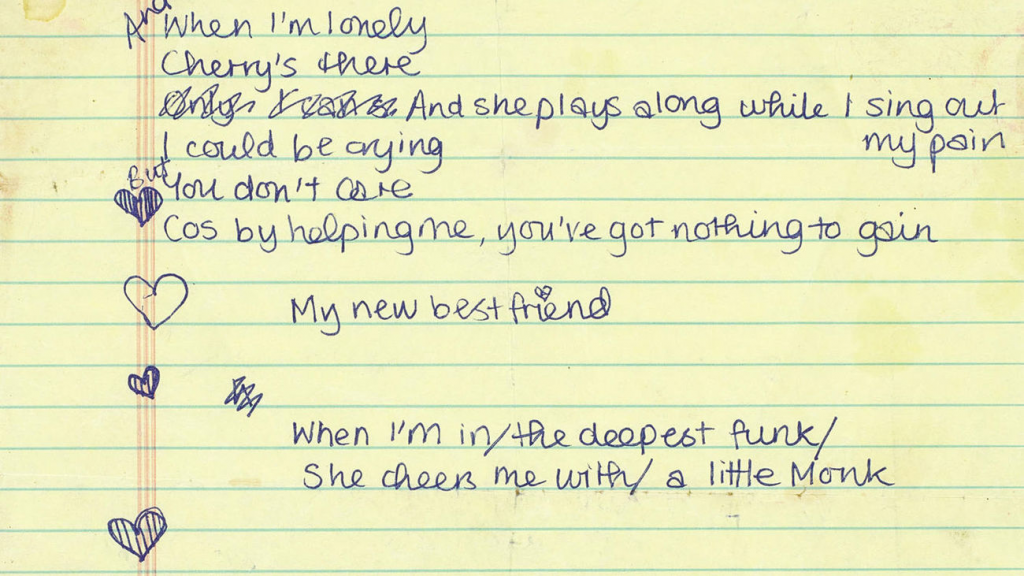 And When I'm lonely
Cherry's there
And she plays along while I sing out
my pain
I could be crying
But You don't care
Cos by helping me, you've got nothing to gain
My new best friend
When I'm in/the deepest funk/
She cheers me with/ a little Monk